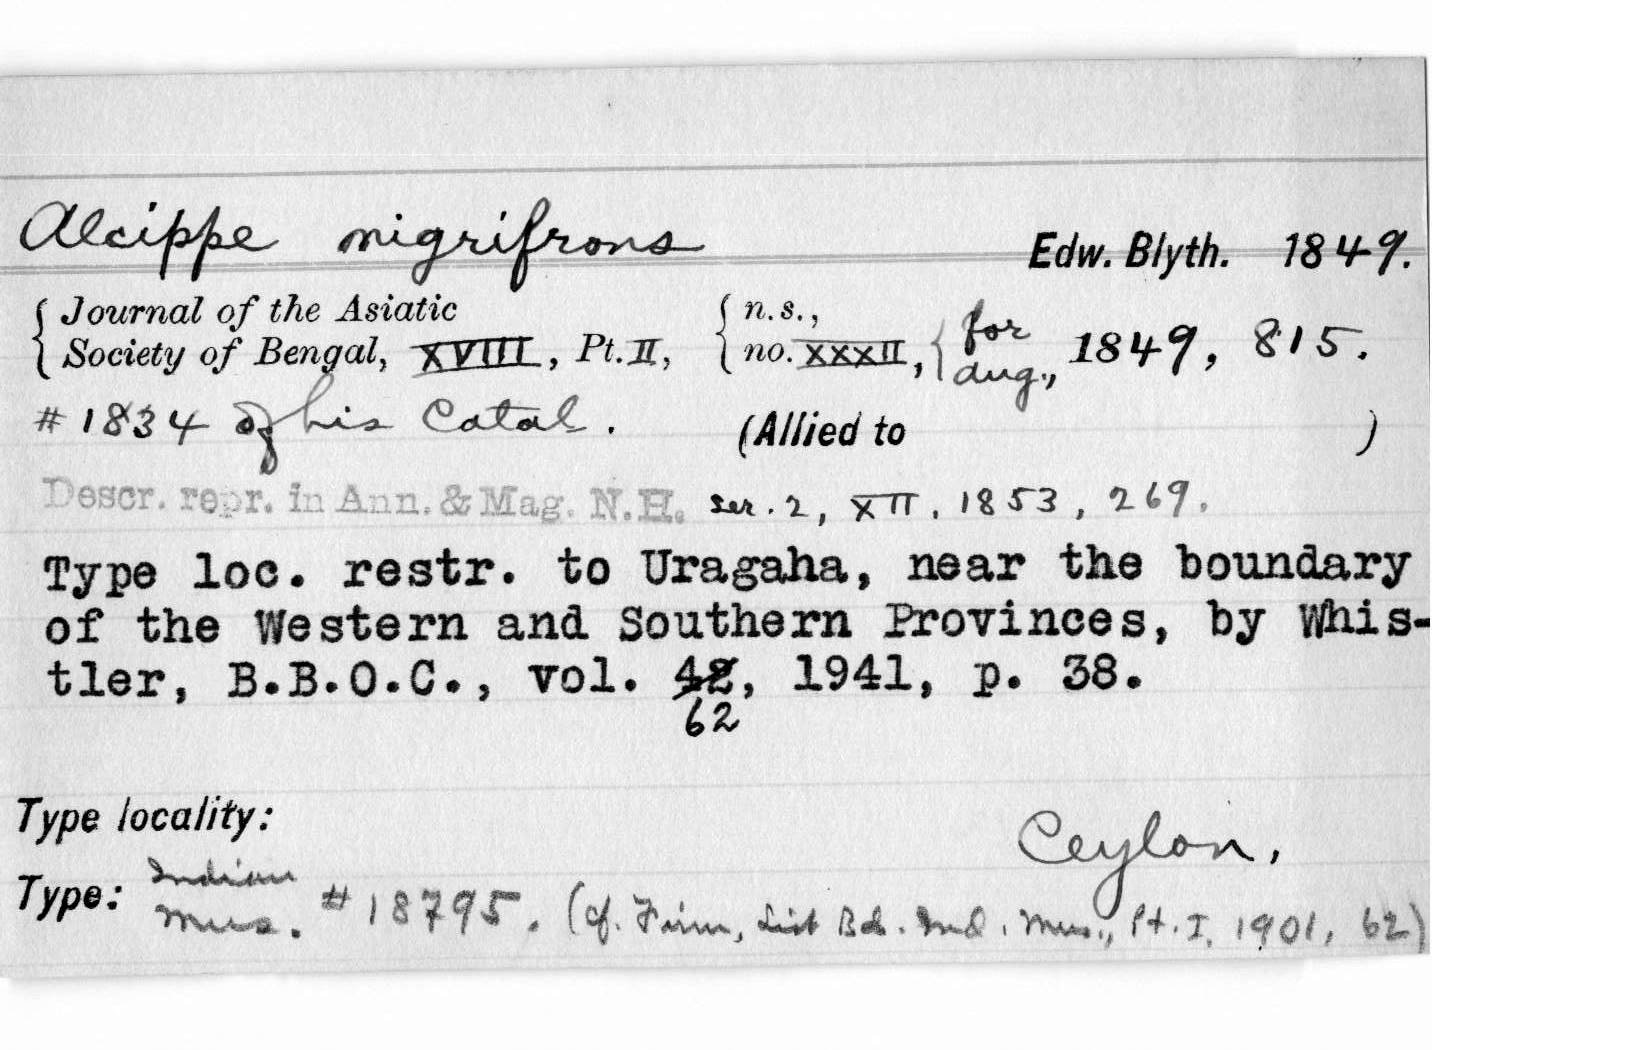 Alcippe nigrifrons Edw. Blyth. 1849.
Journal of the Asiatic n.s., for
Society of Bengal, XVIII, Pt. II, no. XXXII, Aug., 1849, 815.
# 1834 of his Catal. (Allied to )
Descr. repr. in Ann. & Mag. N.H. ser. 2, XII, 1853, 269.
Type loc. restr. to Uragaha, near the boundary
of the Western and Southern Provinces, by Whis-
tler, B.B.O.C., vol. 42, 1941, p. 38.
62
Type locality: Ceylon,
Type: Indian Mus. # 18795. (cf. Finn, List Bds. Ind. Mus., Pt. I, 1901, 62)